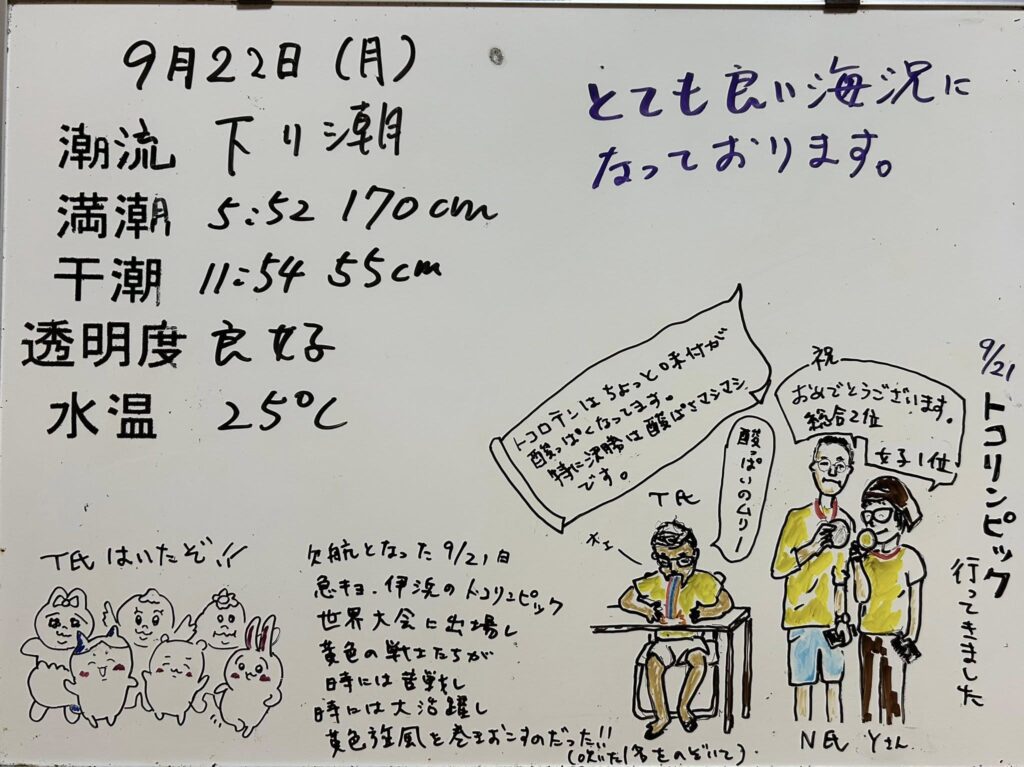 9月22日(月)
潮流 下り潮
満潮 5:52 170cm
干潮 11:54 55cm
透明度 良好
水温 25℃
とても良い海況に
なっております。
9/21 トコリンピック
行ってきました
祝
おめでとうございます。
総合2位
女子1位
トコロテンはちょっと味付が
酸っぱくなってます。
特に決勝は酸っぱさマシマシ
です。
酸っぱいのムリー
T氏
オエ
N氏 Yさん
T氏はいたぞ!!
欠航となった9/21日
急キョ、伊浜のトコリンピック
世界大会に出場し
黄色の戦士たちが
時には苦戦し
時には大活躍し
黄色旋風を巻きおこすのだった!!
(吹いた1名をのぞいて)